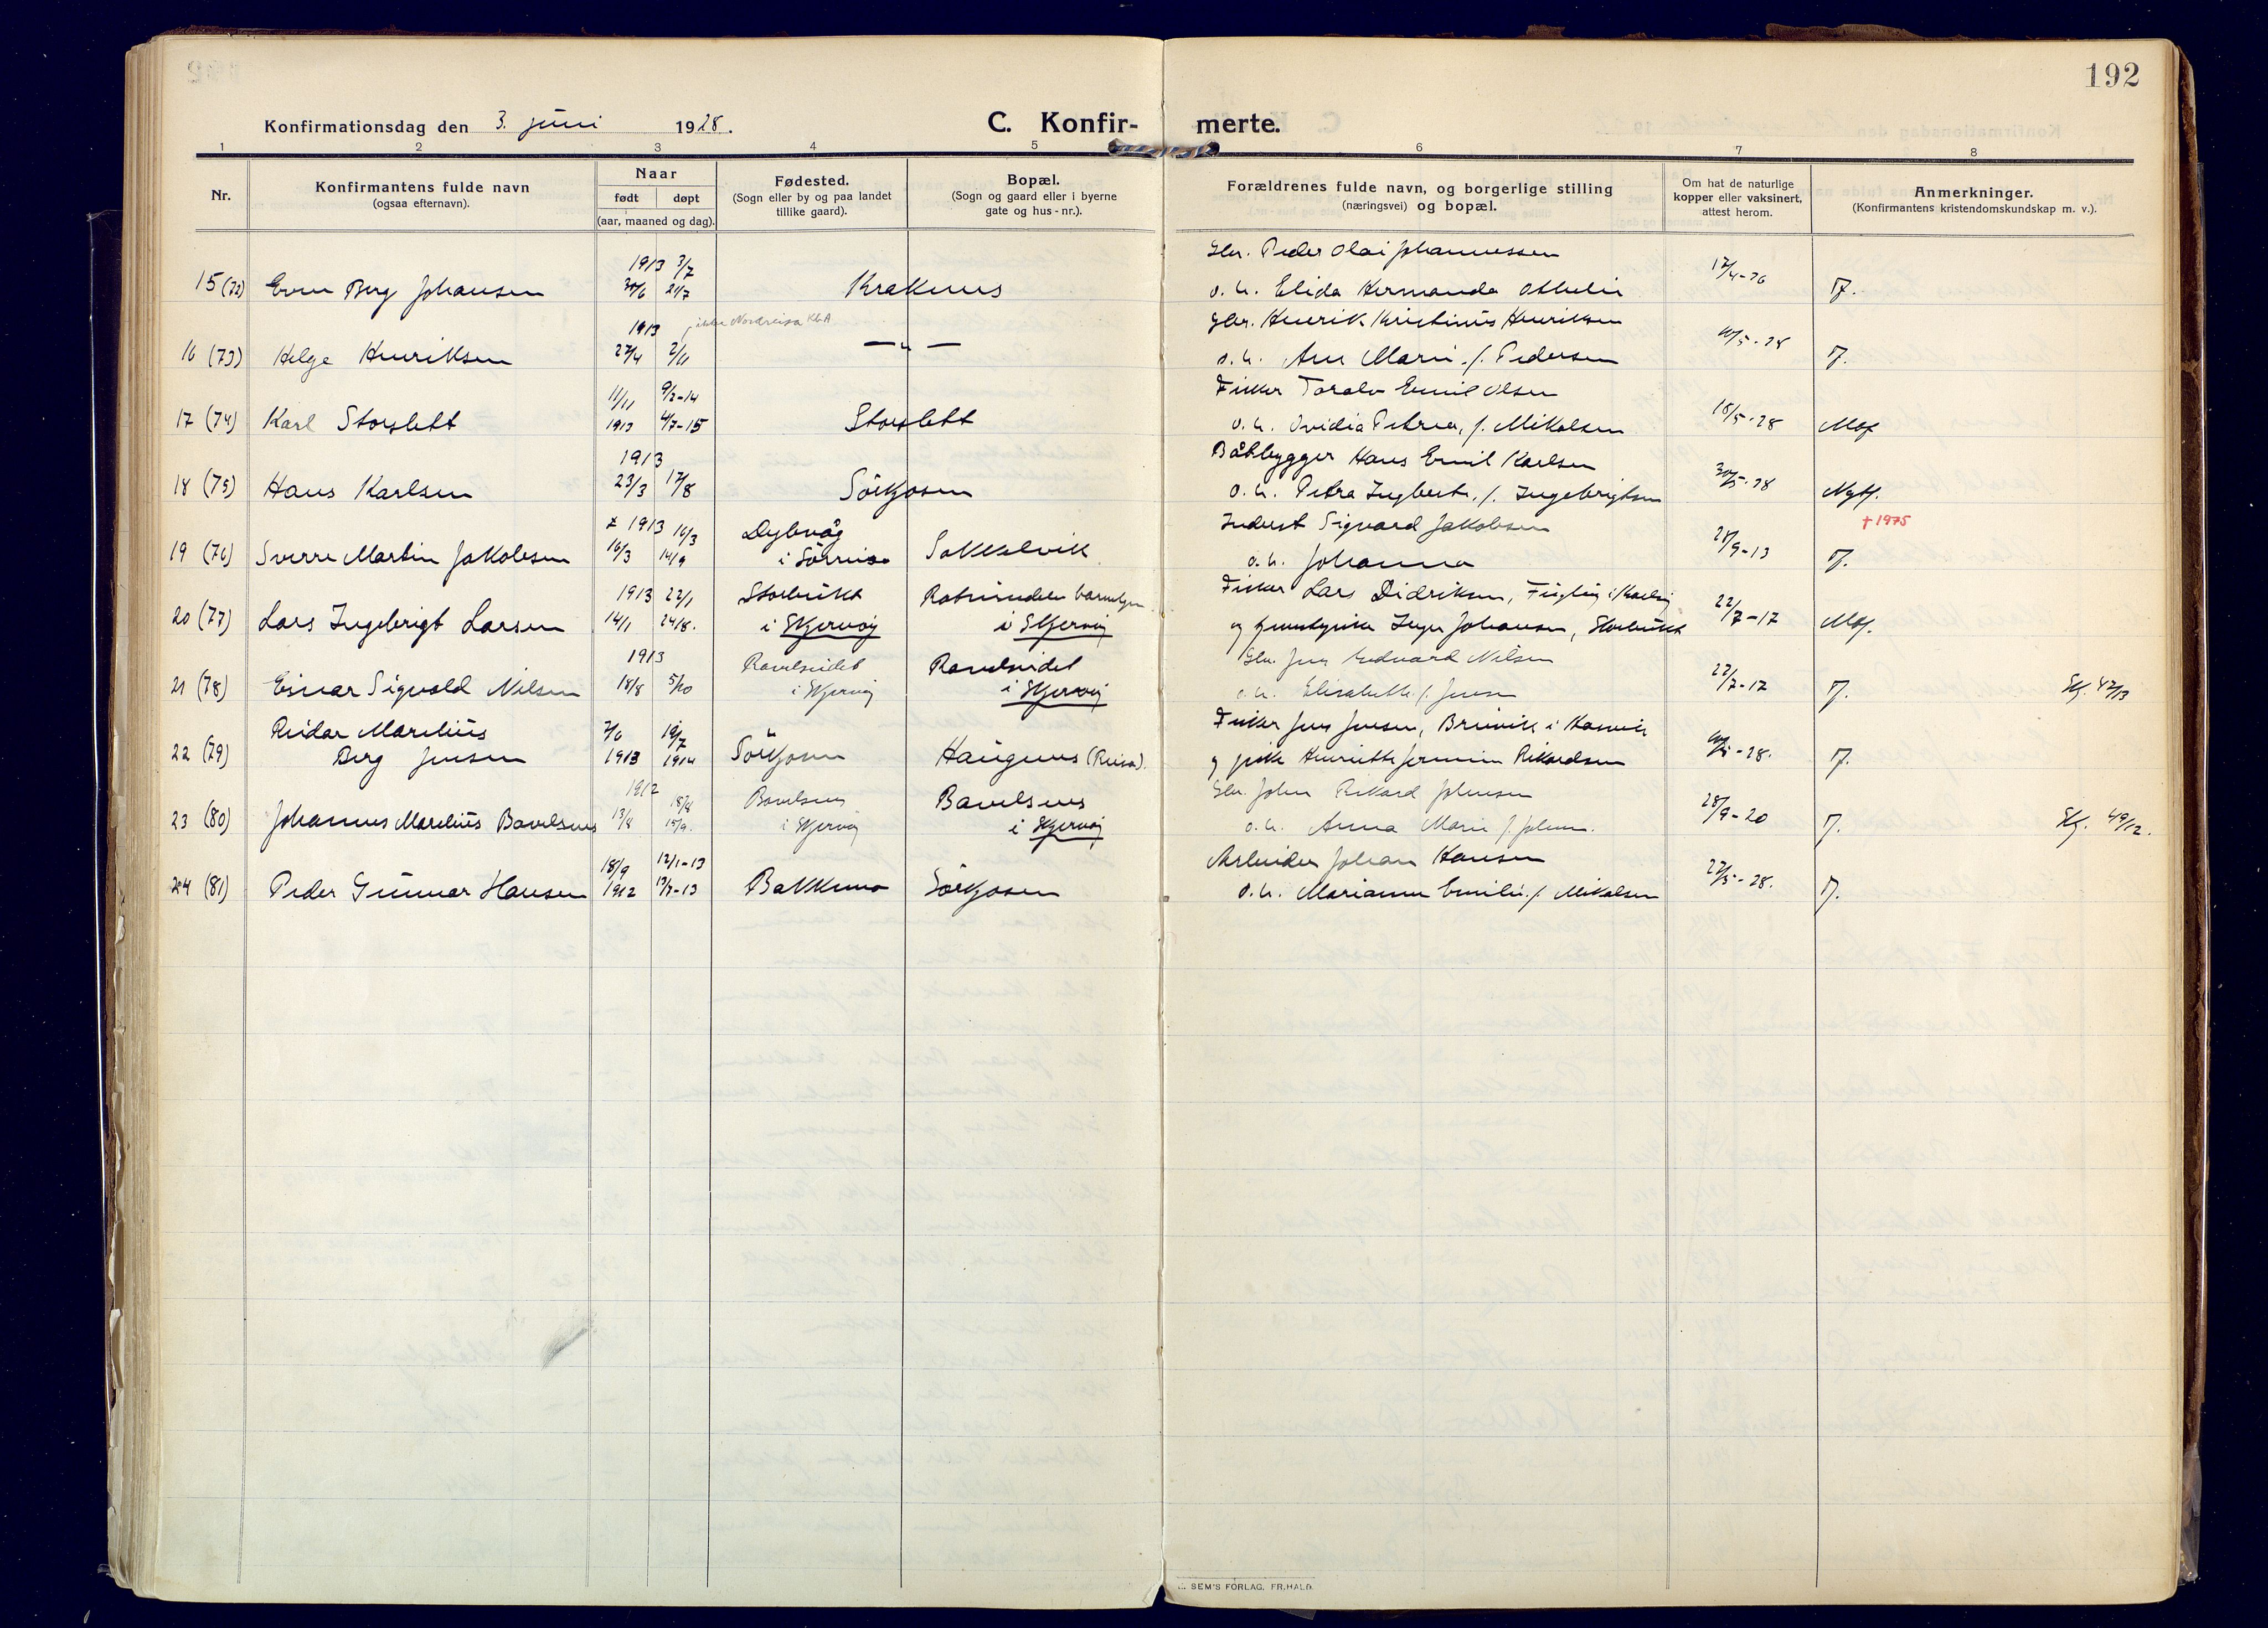 192
Konfirmationsdag den 3. juni 1928.
C. Konfir- merte.
1 2 3 4 5 6 7 8
Nr.
Konfirmantens fulde navn
(ogsaa efternavn).
Naar
født døpt
(aar, maaned og dag).
Fødested.
(Sogn eller by og paa landet
tillike gaard).
Bopæl.
(Sogn og gaard eller i byerne
gate og hus-nr.).
Forældrenes fulde navn, og borgerlige stilling
(næringsvei) og bopæl.
Om hat de naturlige
kopper eller vaksinert,
attest herom.
Anmerkninger.
(Konfirmantens kristendomskundskap m. v.).
1913 3/7 Gbr. Peder Olai Johannessen
15 (72) Berg Johansen 30/6 21/7 Kraknes o. h. Elida Hermanda 17/4-26
1913 ikke Nordreisa Kb A Gbr. Henrik Kristinus Henriksen
16 (73) Helge Henriksen 27/4 2/11 — " — o. h. Ane Marie f. Pedersen
11/11 9/2-14 Fisker Toralv Emil Olsen
17 (74) Karl Storslett 1913 4/7-15 Storslett o. h. Ovidia Petrea, f. Mikalsen 15/5-28 Mgf
1913 Båtbygger Hans Emil Karlsen
18 (75) Hans Karlsen 23/3 17/8 Sörkjosen o. h. Petra Ingberte, f. Ingebrigtsen 30/5-28
+ 1975
1913 16/3 Dybvåg Sigvard Jakobsen
19 (76) Sverre Martin Jakobsen 16/3 14/9 i Sörreisa Sokkelvik o. h. Johanna 28/9-13
1913 22/1 Storbukt Rotsundelv Fisker Lars Didriksen,
20 (77) Lars Ingebrigt Larsen 14/1 24/8. i Skjervøy i Skjervøy og Inger Johansen, Storbukt 22/7-17 Mgf.
1913 Ravelseidet Ravelseidet Gbr. Jens Edvard Nilsen
21 (78) Einar Sigvald Nilsen 18/8 5/10 i Skjervøy i Skjervøy o. h. Elisabeth f. Jensen 22/7-17 Skj. 42/13
Reidar Marelius 7/6 19/7 Fisker Jens Jensen,
22 (79) Berg Jensen 1913 1914 Sörkjosen Haugnes (Reisa). og pike Henriette Rikardsen
1912 18/8 Bavelsnes Bavelsnes Gbr. John Rikard Johnsen
23 (80) Johannes Marelius Bavelsnes 13/8 15/9. i Skjervøy i Skjervøy o. h. Anna Marie f. Johnsen. 28/9-20 Skj. 49/12.
18/9 12/1-13 Arbeider Johan Hansen
24 (81) Peder Gunnar Hansen 1912 13/7-13 Bakkemo Sörkjosen o. h. Marianne Emilie f. Mikalsen 22/5-28.
SEM'S FORLAG, FR.HALD.